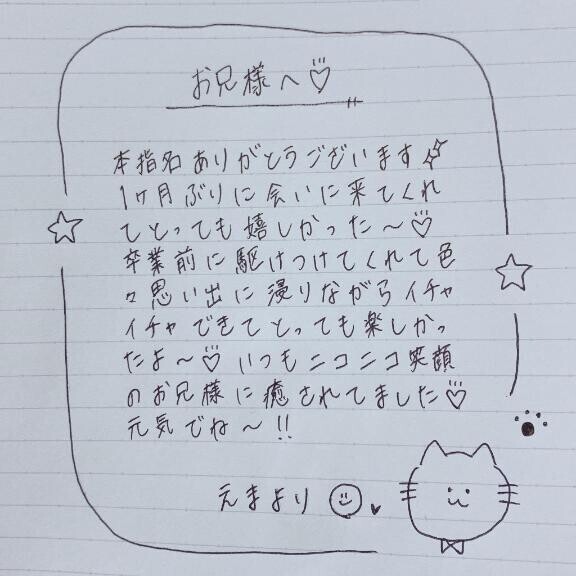 お兄様へ♡
本指名ありがとうございます✨
1ヶ月ぶりに会いに来てくれ
てとっても嬉しかった〜♡
卒業前に駆けつけてくれて色
々思い出に浸りながらイチャ
イチャできてとっても楽しかっ
たよ〜♡いつもニコニコ笑顔
のお兄様に癒されてました♡
元気でね〜!!
えまより